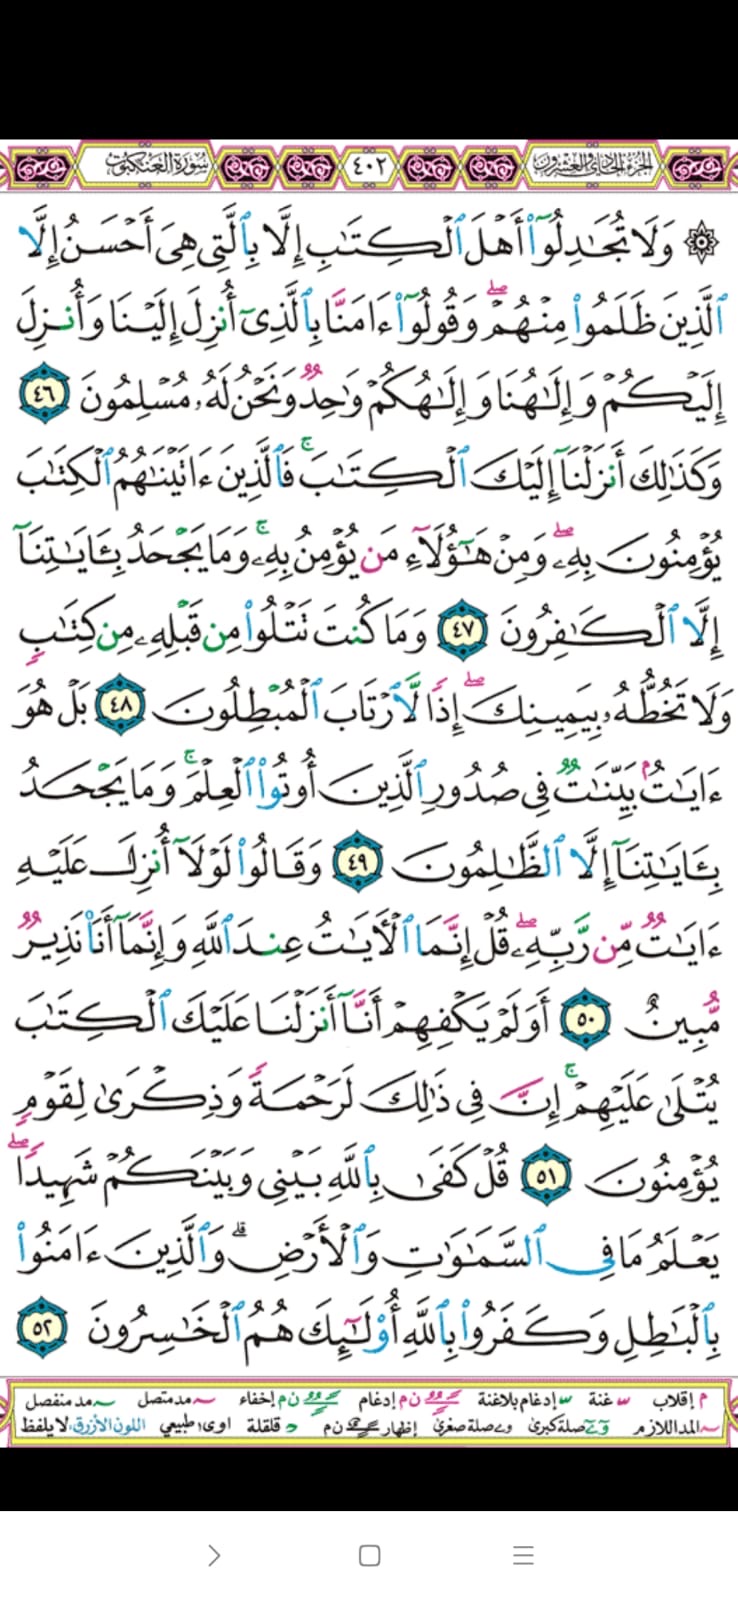 الجزء الحادي والعشرون ٤٠٢ سورة العنكبوت
۞ وَلَا تُجَٰدِلُوٓا۟ أَهْلَ ٱلْكِتَٰبِ إِلَّا بِٱلَّتِى هِىَ أَحْسَنُ إِلَّا
ٱلَّذِينَ ظَلَمُوا۟ مِنْهُمْ ۖ وَقُولُوٓا۟ ءَامَنَّا بِٱلَّذِىٓ أُنزِلَ إِلَيْنَا وَأُنزِلَ
إِلَيْكُمْ وَإِلَٰهُنَا وَإِلَٰهُكُمْ وَٰحِدٌ وَنَحْنُ لَهُۥ مُسْلِمُونَ ٤٦
وَكَذَٰلِكَ أَنزَلْنَآ إِلَيْكَ ٱلْكِتَٰبَ ۚ فَٱلَّذِينَ ءَاتَيْنَٰهُمُ ٱلْكِتَٰبَ
يُؤْمِنُونَ بِهِۦ ۖ وَمِنْ هَٰٓؤُلَآءِ مَن يُؤْمِنُ بِهِۦ ۚ وَمَا يَجْحَدُ بِـَٔايَٰتِنَآ
إِلَّا ٱلْكَٰفِرُونَ ٤٧ وَمَا كُنتَ تَتْلُوا۟ مِن قَبْلِهِۦ مِن كِتَٰبٍ
وَلَا تَخُطُّهُۥ بِيَمِينِكَ ۖ إِذًا لَّٱرْتَابَ ٱلْمُبْطِلُونَ ٤٨ بَلْ هُوَ
ءَايَٰتٌۢ بَيِّنَٰتٌ فِى صُدُورِ ٱلَّذِينَ أُوتُوا۟ ٱلْعِلْمَ ۚ وَمَا يَجْحَدُ
بِـَٔايَٰتِنَآ إِلَّا ٱلظَّٰلِمُونَ ٤٩ وَقَالُوا۟ لَوْلَآ أُنزِلَ عَلَيْهِ
ءَايَٰتٌ مِّن رَّبِّهِۦ ۖ قُلْ إِنَّمَا ٱلْـَٔايَٰتُ عِندَ ٱللَّهِ وَإِنَّمَآ أَنَا۠ نَذِيرٌ
مُّبِينٌ ٥٠ أَوَلَمْ يَكْفِهِمْ أَنَّآ أَنزَلْنَا عَلَيْكَ ٱلْكِتَٰبَ
يُتْلَىٰ عَلَيْهِمْ ۚ إِنَّ فِى ذَٰلِكَ لَرَحْمَةً وَذِكْرَىٰ لِقَوْمٍ
يُؤْمِنُونَ ٥١ قُلْ كَفَىٰ بِٱللَّهِ بَيْنِى وَبَيْنَكُمْ شَهِيدًا ۖ
يَعْلَمُ مَا فِى ٱلسَّمَٰوَٰتِ وَٱلْأَرْضِ ۗ وَٱلَّذِينَ ءَامَنُوا۟
بِٱلْبَٰطِلِ وَكَفَرُوا۟ بِٱللَّهِ أُو۟لَٰٓئِكَ هُمُ ٱلْخَٰسِرُونَ ٥٢
م إقلاب غنة إدغام بلاغنة ن م إدغام ن م إخفاء مد متصل مد منفصل
المد اللازم صلة كبرى صلة صغرى إظهار ن م قلقلة اوى طبيعي اللون الأزرق لا يلفظ